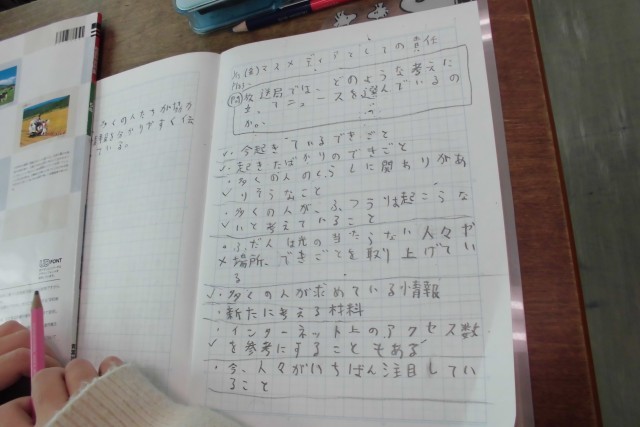 多くの人たちが協力
情報を分かりやすく伝
ている。
マスメディアとしての責任
問 放送局では、どのような考えた
ま、てニュースを選んでいるの
か。
✓・今起きているできごと
✓・起きたばかりのできごと
・多くの人のくらしに関わりがあ
✓りそうなこと
・多くの人が、ふつうは起こらな
✓いと考えていること
・ふだんは光の当たらない人々や
×場所、できごとを取り上げてい
る
✓・多くの人が求めている情報
・新たに考える材料
・インターネット上のアクセス数
✓を参考にすることもある
・今、人々がいちばん注目してい
ること
FONT